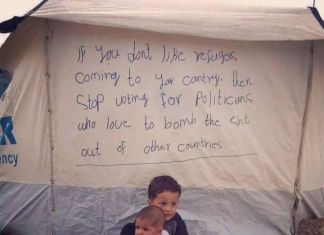 If you dont like refugees
coming to your contry, then
stop voting for Politicians
who love to bomb the shit
out of other countries
ency